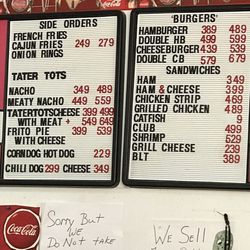 SIDE ORDERS
FRENCH FRIES
CAJUN FRIES 249 279
ONION RINGS
TATER TOTS
NACHO 349 489
MEATY NACHO 449 559
TATERTOTSCHEESE 399 499
WITH MEAT + 549 649
FRITO PIE 399 539
WITH CHEESE
CORNDOG HOT DOG 229
CHILI DOG 299 CHEESE 349
'BURGERS'
HAMBURGER 389 489
DOUBLE HB 499 599
CHEESEBURGER 439 539
DOUBLE CB 579 679
SANDWICHES
HAM 349
HAM & CHEESE 399
CHICKEN STRIP 469
GRILLED CHICKEN 489
CATFISH 9
CLUB 499
SHRIMP 529
GRILL CHEESE 239
BLT 389
Coca-Cola
Sorry But
WE
Do Not take
WE SELL